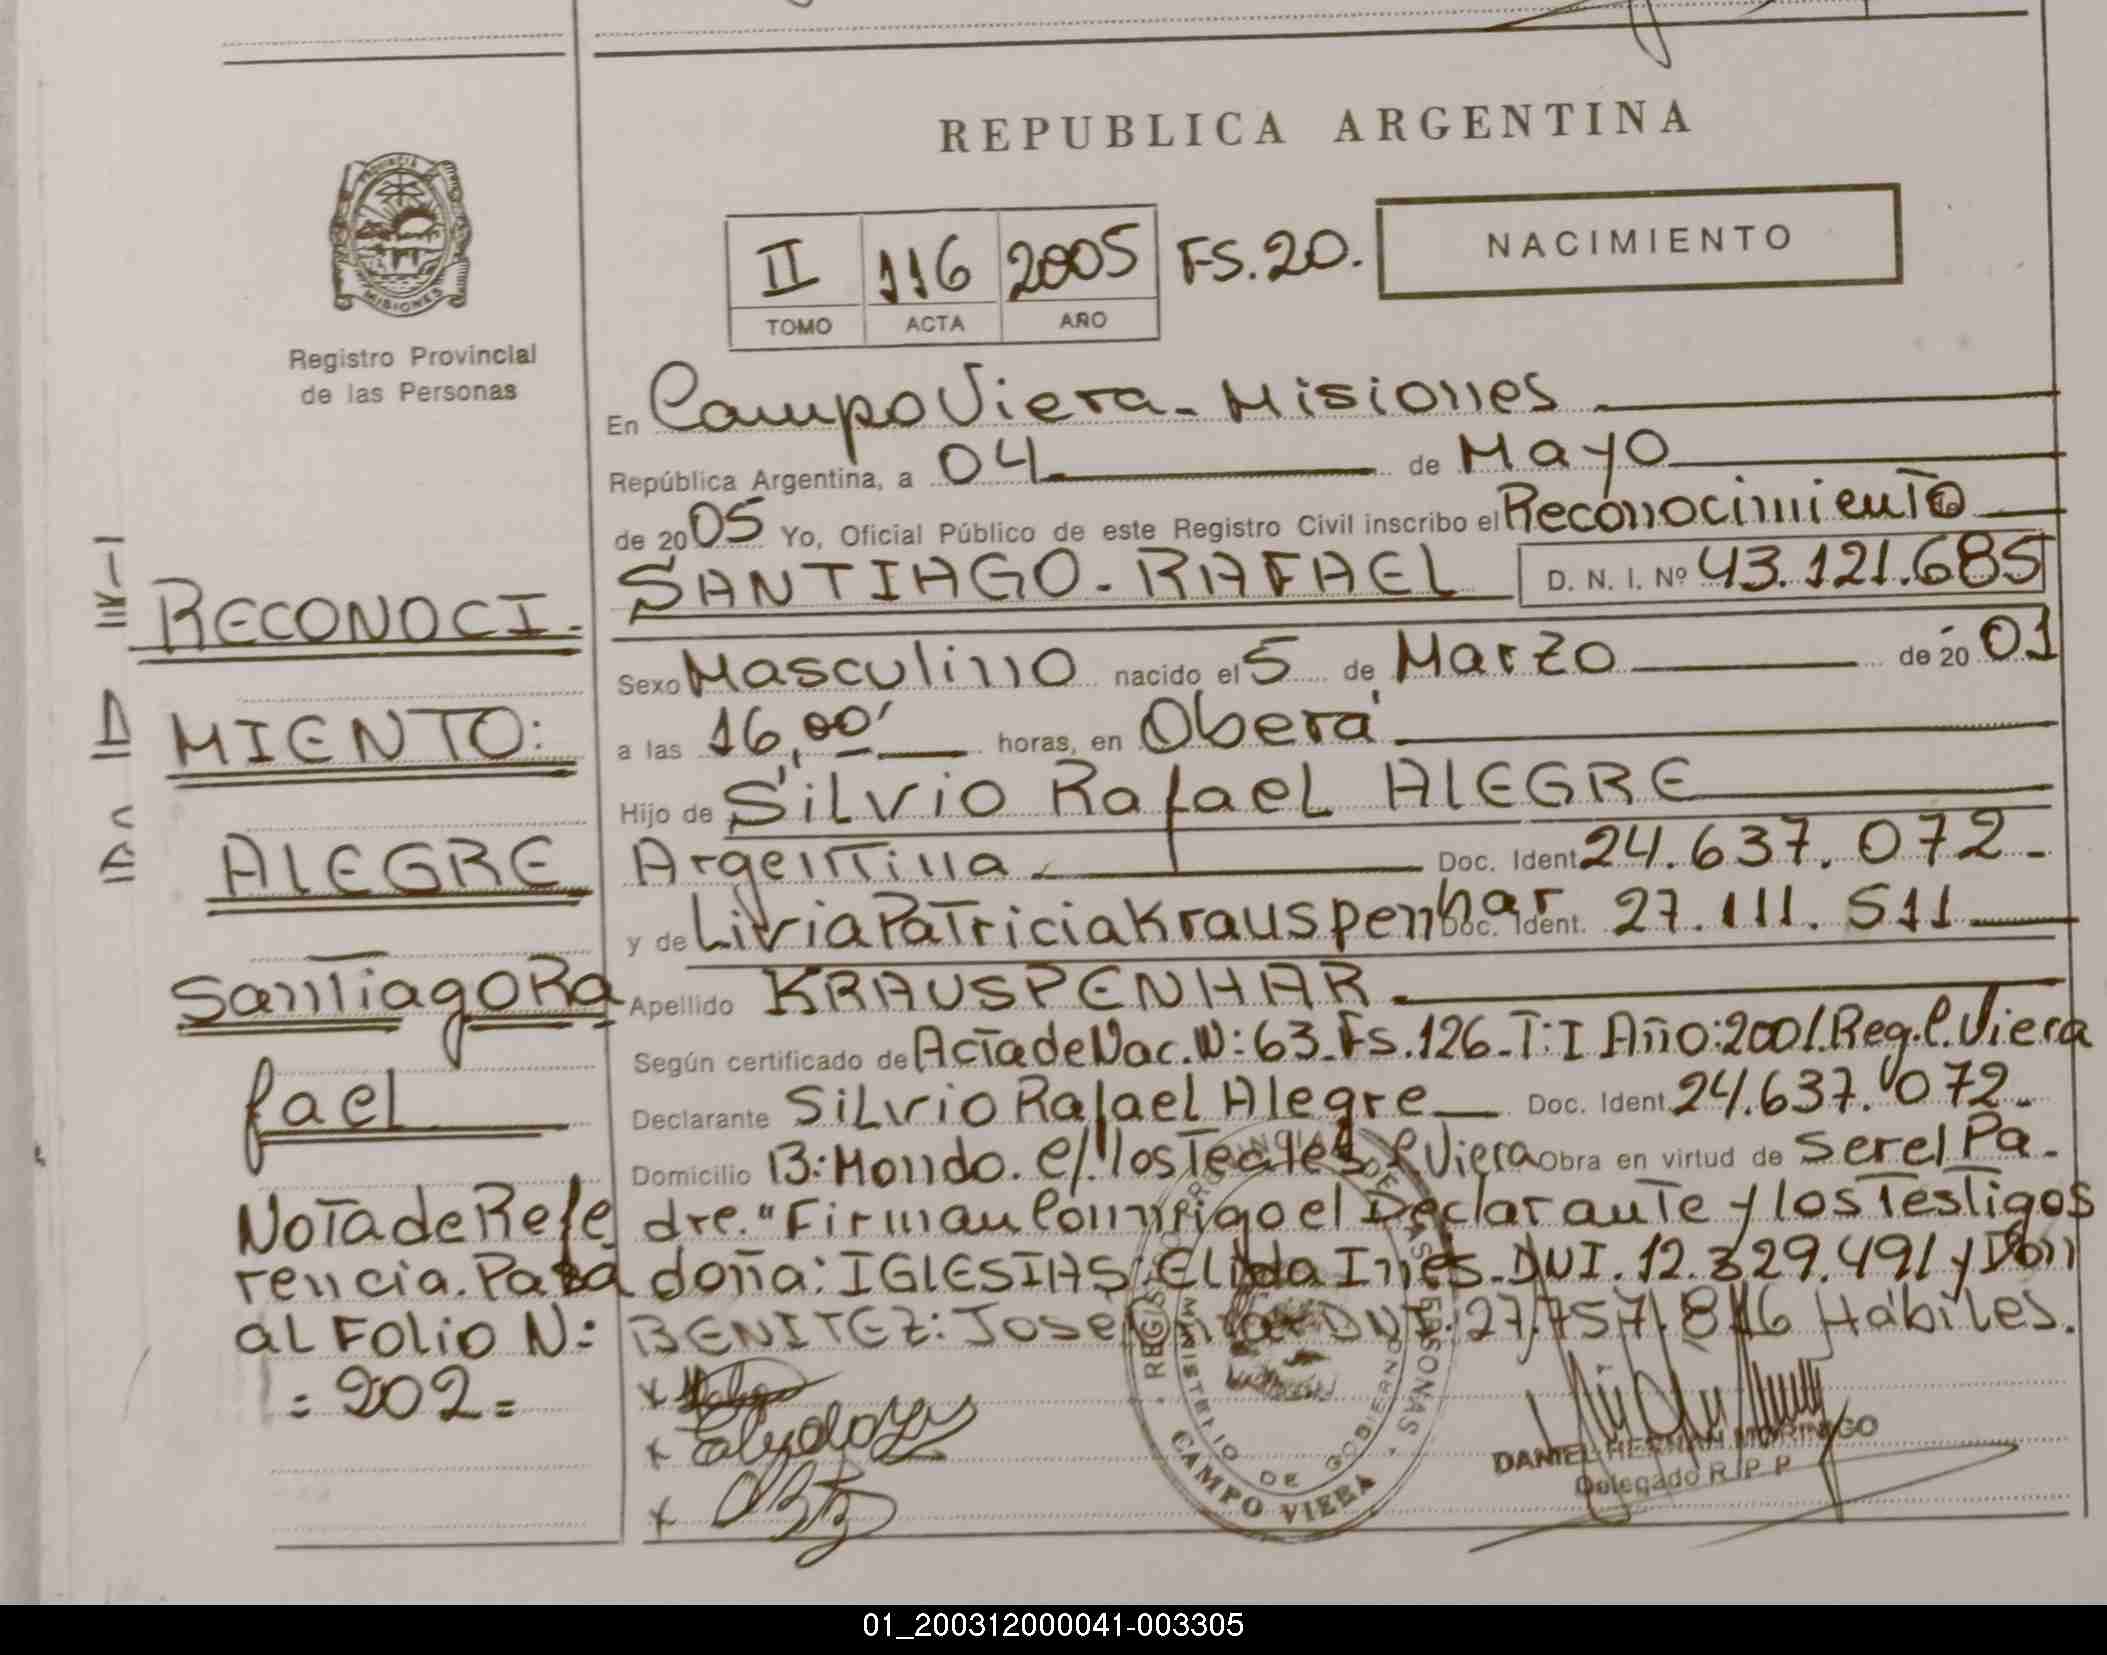 REPUBLICA ARGENTINA
PROVINCIA
MISIONES
Registro Provincial
de las Personas
II 116 2005 FS.20. NACIMIENTO
TOMO ACTA AÑO
En Campo Viera - Misiones
República Argentina, a 04 de Mayo
de 2005 Yo, Oficial Público de este Registro Civil inscribo el Reconocimiento
SANTIAGO - RAFAEL D. N. I. Nº 43.121.685
Sexo Masculino nacido el 5 de Marzo de 20 01
a las 16,00' horas, en Oberá
Hijo de Silvio Rafael ALEGRE
Argentina Doc. Ident. 24.637.072-
y de Livia Patricia Krauspenhar Doc. Ident. 27.111.511
Apellido KRAUSPENHAR
Según certificado de Acta de Nac. N: 63 - Fs. 126 - T: I Año: 2001. Reg. C. Viera
Declarante Silvio Rafael Alegre Doc. Ident. 24.637.072-
Domicilio B: Mondo. C. Viera Obra en virtud de Ser el Pa-
dre." Firman Conmigo el Declarante y los Testigos
doña: IGLESIAS: Elida Ines - DNI. 12.329.491 y Don
BENITEZ: José DNI: 27.757.816 Hábiles.
RECONOCI-
MIENTO:
ALEGRE
Santiago Ra
fael
Nota de Refe
rencia. Pasa
al Folio N:
= 202 =
MINISTERIO DE GOBIERNO
CAMPO VIERA
DANIEL HERNAN MORINIGO
Delegado R P P
01_200312000041-003305